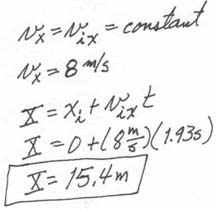 Vx = Vix = constant
Vx = 8 m/s
X = xi + Vix t
X = 0 + (8 m/s)(1.93s)
X = 15.4m